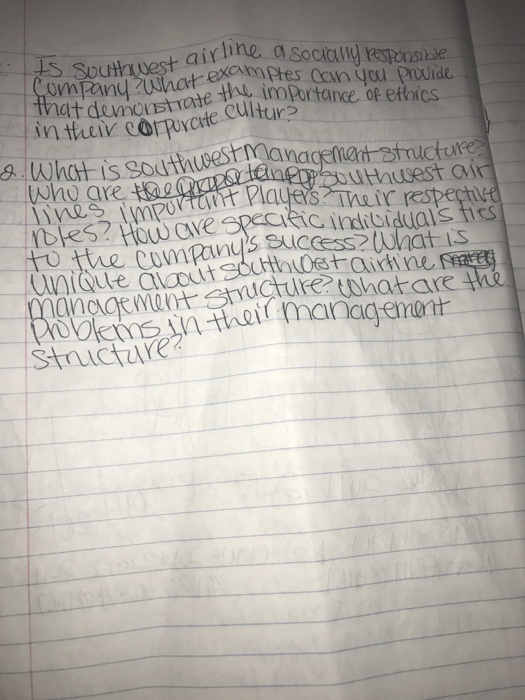 Is Southwest airline a socially responsible
Company? What examples can you provide
that demonstrate the importance of ethics
in their corporate cultur?
2. What is southwest Management structure?
Who are southwest air
lines important Players? Their respective
roles? How are specific individuals ties
to the company's success? What is
unique about southwest airline
management structure? What are the
problems in their management
structure?